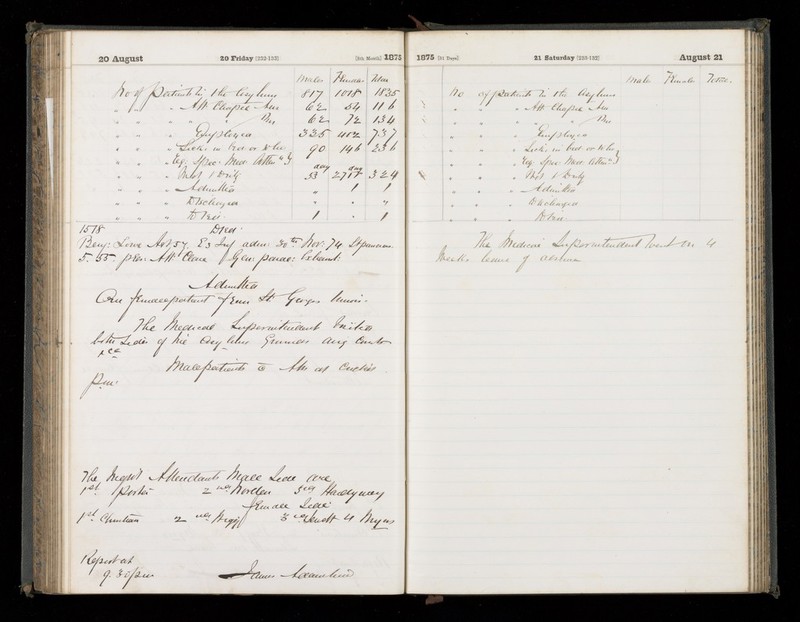 20 August 20 Friday [232-133] [8th Month] 1875
Males Females Total
No of Patients in the Asylum 817 1018 1835
" " " Att Chapel Am 62 54 116
" " " " Pm 62 72 134
" " " Employed 335 402 737
" " " Sick in bed or 90 146 236
" " " Req. Spec. Med. Attn
day day
" " " Wet & Dirty 53 271 324
" " " Admitted " 1 1
" " " Discharged " " "
" " " Died 1 " 1
1578 Died
Benj: Lowe Aet 57. E3 Inf adm: 30th Nov: 74 St pancras
5.55 pm. Att Clare Gen: paral: Exhaust:
Admitted
One female patient from St Georges Union.
The Medical Superintendent Visited
both sides of the Asylum Grounds
Male patients to
Pm
The Night Attendants Male Side are,
1st Porter 2nd Norden 3rd
Female Side
1st Christian 2nd 3rd 4 Myers
Report at
9.30 pm James
1875 [31 Days] 21 Saturday [233-132] August 21
Male Female Total
No of patients in the Asylum
" " " Att Chapel Am
" " " " Pm
" " " Employed
" " " Sick in bed or
" " " Req Spec Med Attn
" " " Wet & Dirty
" " " Admitted
" " " Discharged
" " " Died
The Medical Superintendent went on 4
Weeks leave of absence